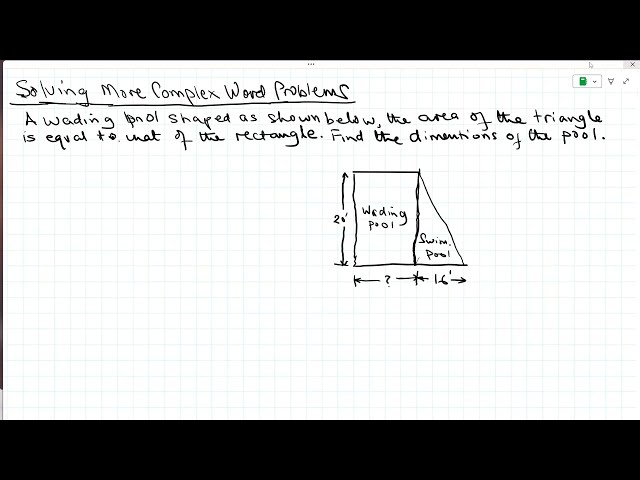 Solving More Complex Word Problems
A wading pool shaped as shown below, the area of the triangle
is equal to that of the rectangle. Find the dimentions of the pool.
20'
Wading
pool
Swim.
pool
?
16'